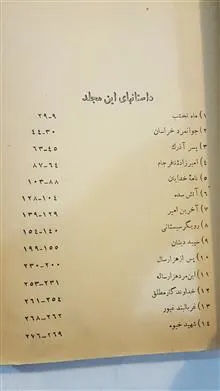 داستانهای این مجلد
۱) ماه نخشب ۹-۲۹
۲) جوانمرد خراسان ۳۰-۴۴
۳) پسر آذرک ۴۵-۶۳
۴) امیرزادهٔ نافرجام ۶۴-۸۷
۵) نامهٔ خدایان ۸۸-۱۰۳
۶) آتش سده ۱۰۴-۱۲۸
۷) آخرین امیر ۱۲۹-۱۳۹
۸) رویگر سیستانی ۱۴۰-۱۵۴
۹) سپهبد دیشان ۱۵۵-۱۹۹
۱۰) پس از هزار سال ۲۰۰-۲۳۰
۱۱) این مرد هزار ساله ۲۳۱-۲۵۳
۱۲) خداوندگار مطلق ۲۵۴-۲۶۱
۱۳) فرمالبند غیور ۲۶۲-۲۶۸
۱۴) شهید خیوه ۲۶۹-۲۷۶